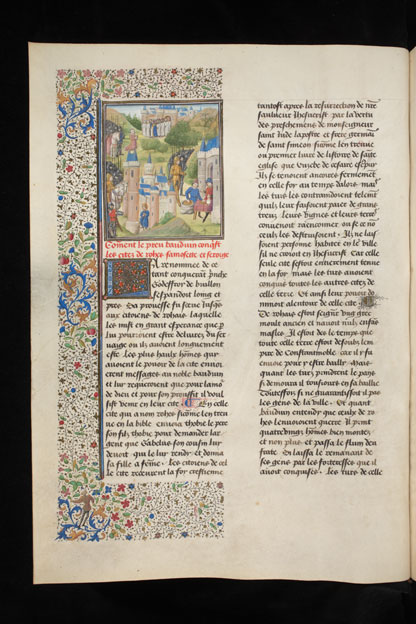 Coment le preu bauduin conqst
les cites de rohes samosette et seroge
La renomee de ce
tant conquerant prince
Godeffroy de buillon
sespandoit long et
pres Sa prouesse fu sceue iusqs
aux citoiens de rohais laquelle
les mist en grant esperance que p
lui pourroient estre delivrez du ser
uaige ou ilz auoient longuement
este Les plus haulx homes qui
auoient le pouoir de la cite enuoi
erent messages au noble bauduin
et lui requeroient que pour lamo
de dieu et pour son prouffit il voul
sist venir en leur cite En celle
cite qui a nom rohes sicome len treu
ue en la bible enuoia thobie le pere
son filz thobie pour demander lar
gent que Gabelus son cousin lui
deuoit qui le lui rendi et donna
sa fille a feme Les citoiens de cel
le cite receurent la foy crestienne
tantost apres la resurrection de nre
sauueur Ihesucrist par la vertu
des preschemens de monseigneur
saint iude lapostre et frere germai
de saint simeon sicome len treuue
ou premier liure de listoire de sainte
eglise que Eusebe de cesaire escript
Ilz se tenoient ancores fermement
en celle foy au temps dalors mais
les turs les contraindoient telemt
quilz leur faisoient paier de grans
treuz leurs vignes et leurs terres
conuenoit raenconner ou se ce no
ceulz les destruisoient Ilz ne lai
soient persone habiter en le ville
sil ne creoit en Ihesucrist Car celle
seule cite sestoit entierement tenue
en la foy mais les turs auoient
conquis toutes les autres citez de
celle terre Et ainsi leur pouoir do
minoit alentour de celle cite
De rohais estoit seigneur vng grec
moult ancien et nauoit nulz enfans
masles Il estoit des le temps que
toute celle terre estoit desoubz lem
pire de Constantnoble car il y fu
enuoie pour y estre baillif Mais
quant les turs prindrent le pays
si demoura il tousiours en sa baillie
Toutesfois si ne guarantissoit il pas
les gens de la ville Et quant
bauduin entendi que ceulx de ro
hes lenuoioient querre Il print
quatre vingz homes bien montez
et non plus et passa le flum deu
frate En laissa le remanant de
ses gens par les forteresses que il
auoit conquises Les turs de celle